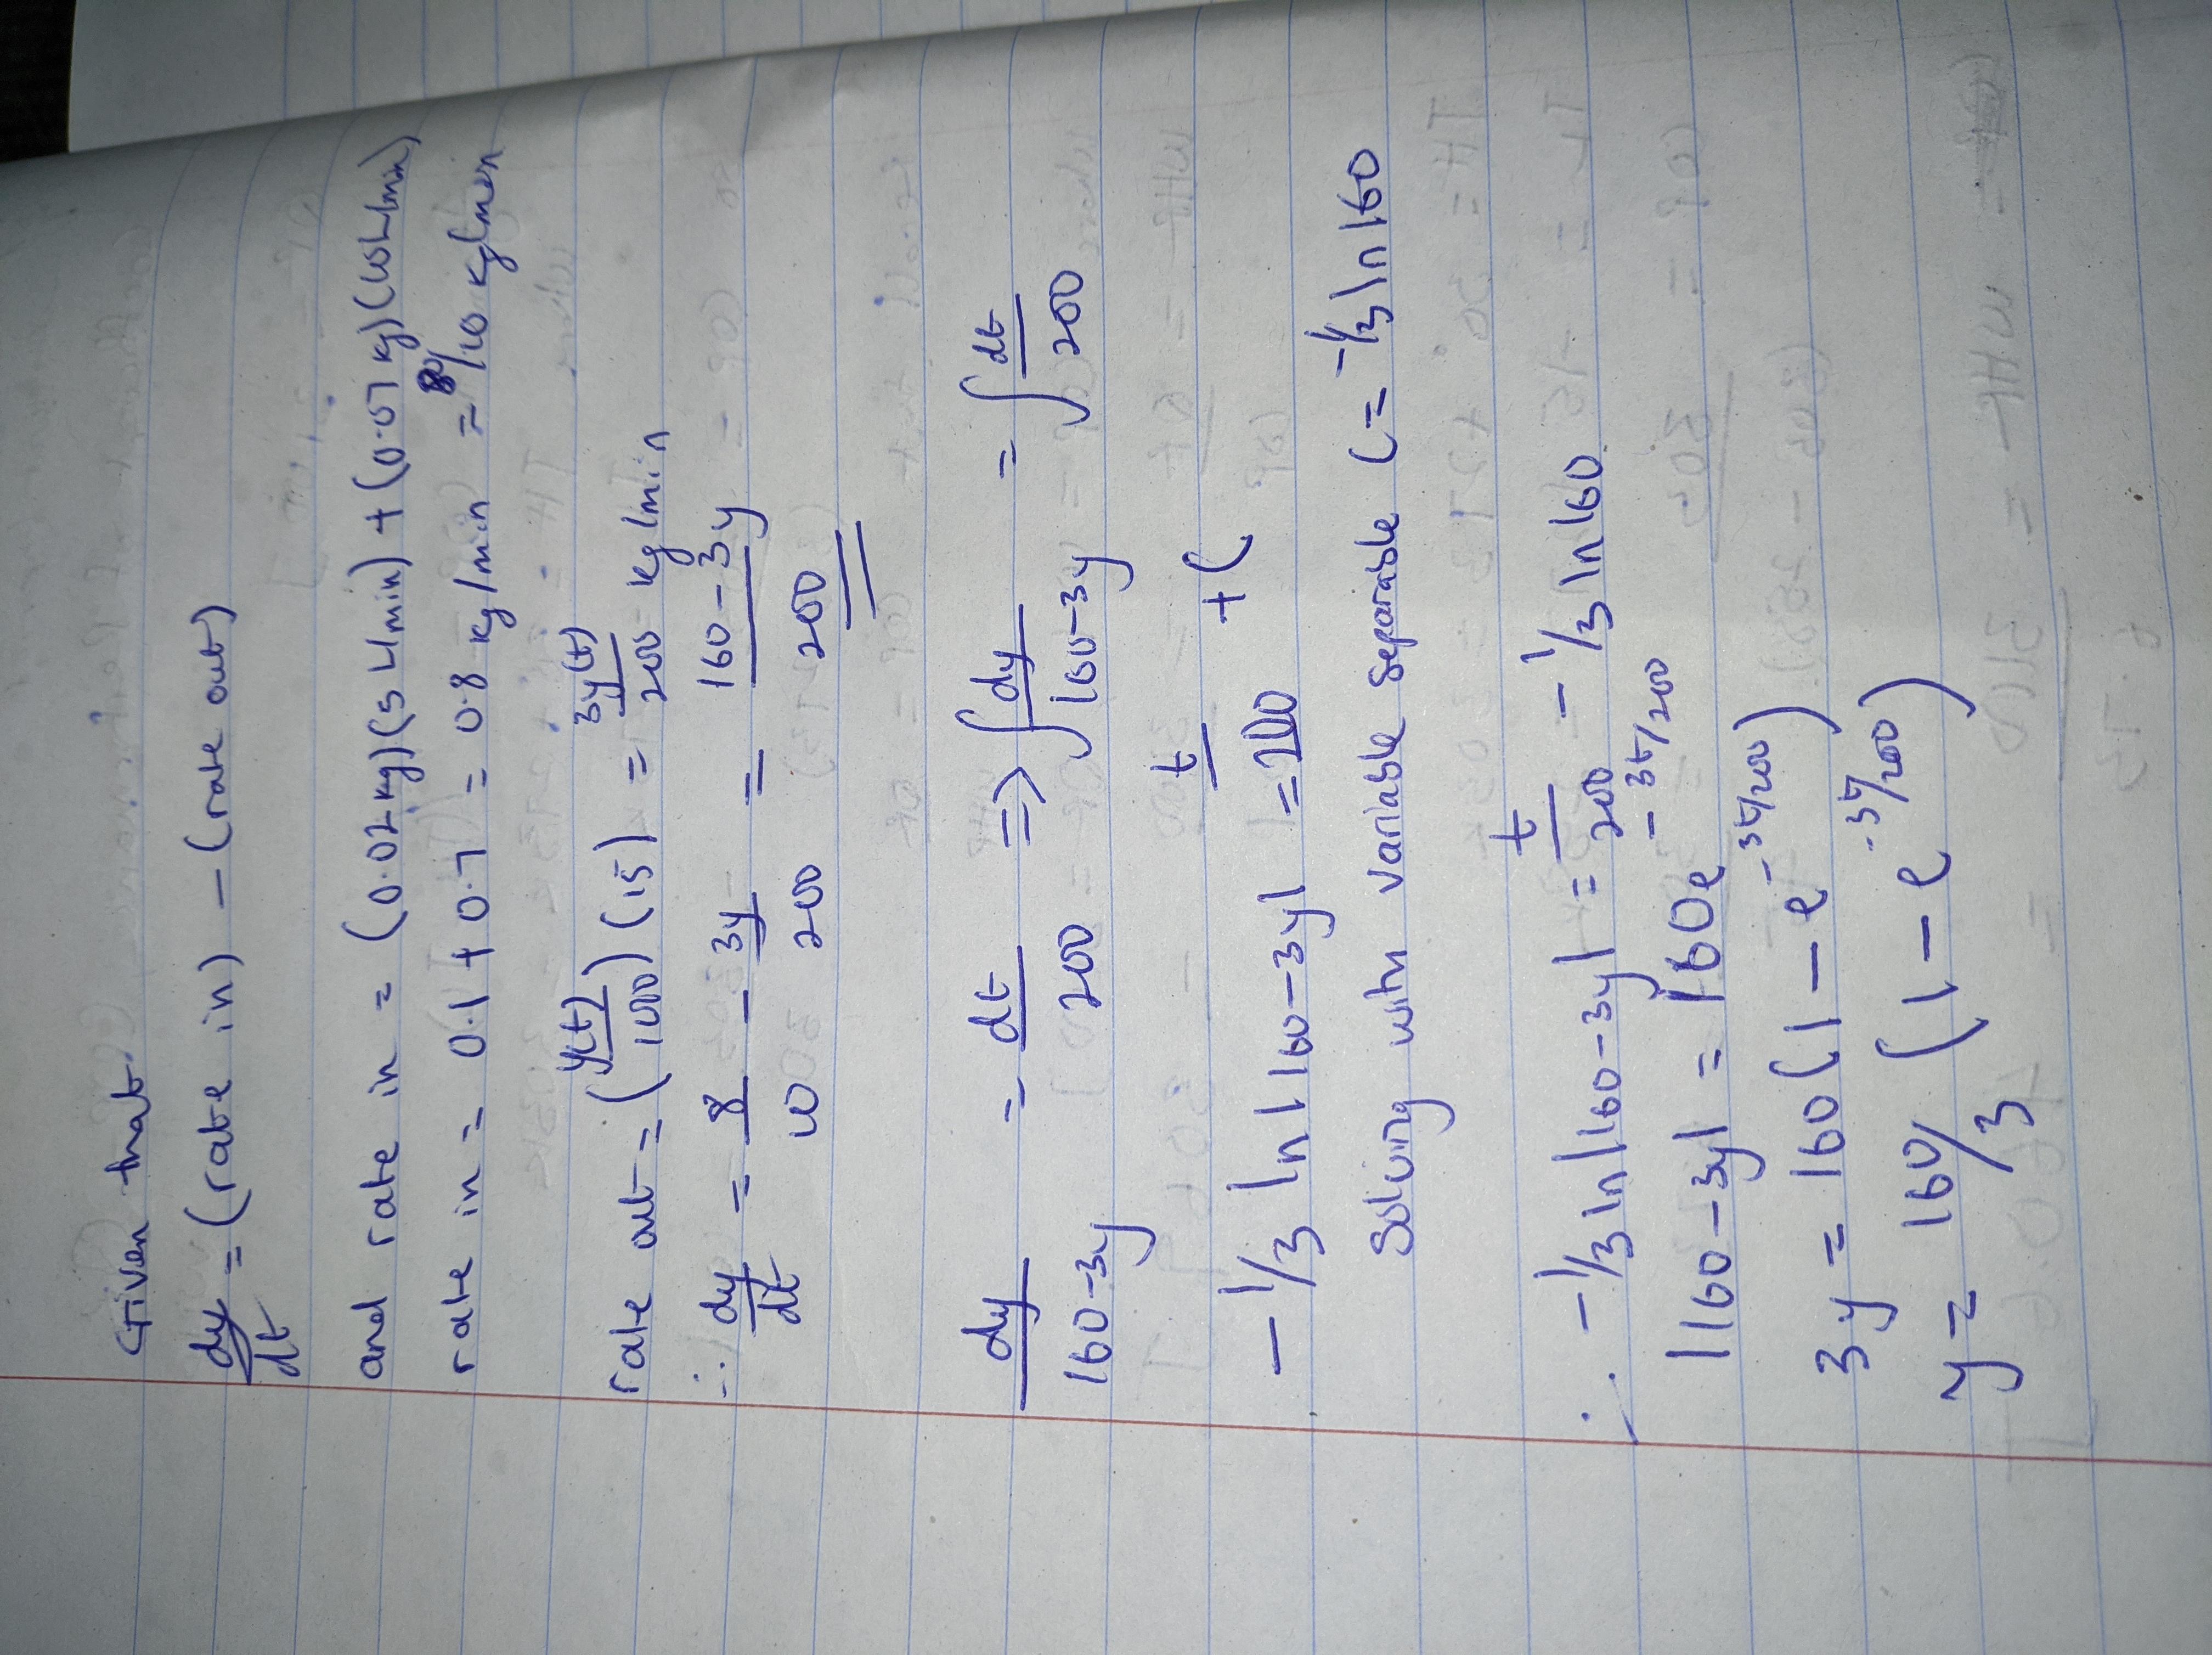 Given that
dy/dt = (rate in) - (rate out)
and rate in = (0.02 kg)(5 L/min) + (0.07 kg)(10 L/min)
rate in = 0.1 + 0.7 = 0.8 kg/min = 8/10 kg/min
rate out = (y(t)/1000)(15) = 3y(t)/200 kg/min
∴ dy/dt = 8/10 - 3y/200 = 160-3y/200
dy/160-3y = dt/200 => ∫dy/160-3y = ∫dt/200
-1/3 ln|160-3y| = t/200 + C
Solving with variable separable C = -1/3 ln 160
∴ -1/3 ln|160-3y| = t/200 - 1/3 ln 160
|160-3y| = 160e^-3t/200
3y = 160(1 - e^-3t/200)
y = 160/3 (1 - e^-3t/200)